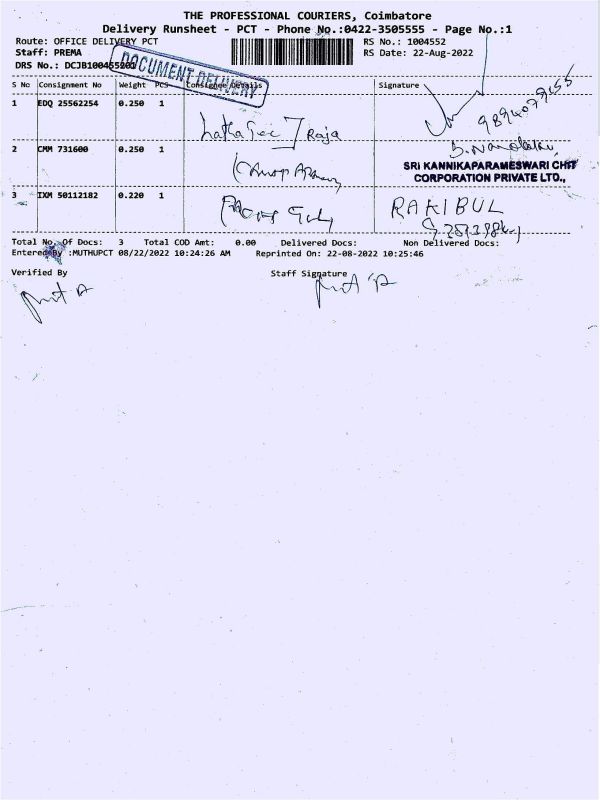 THE PROFESSIONAL COURIERS, Coimbatore
Delivery Runsheet - PCT - Phone No.:0422-3505555 - Page No.:1
Route: OFFICE DELIVERY PCT RS No.: 1004552
Staff: PREMA RS Date: 22-Aug-2022
DRS No.: DCJB100455201
DOCUMENT DELIVERY
S No Consignment No Weight PCS Consignee Details Signature
1 EDQ 25562254 0.250 1
Raja
2 CMM 731600 0.250 1
SRI KANNIKAPARAMESWARI CHIT
CORPORATION PRIVATE LTD.,
3 IXM 50112182 0.220 1 RAKIBUL
Total No. Of Docs: 3 Total COD Amt: 0.00 Delivered Docs: Non Delivered Docs:
Entered By :MUTHUPCT 08/22/2022 10:24:26 AM Reprinted On: 22-08-2022 10:25:46
Verified By Staff Signature